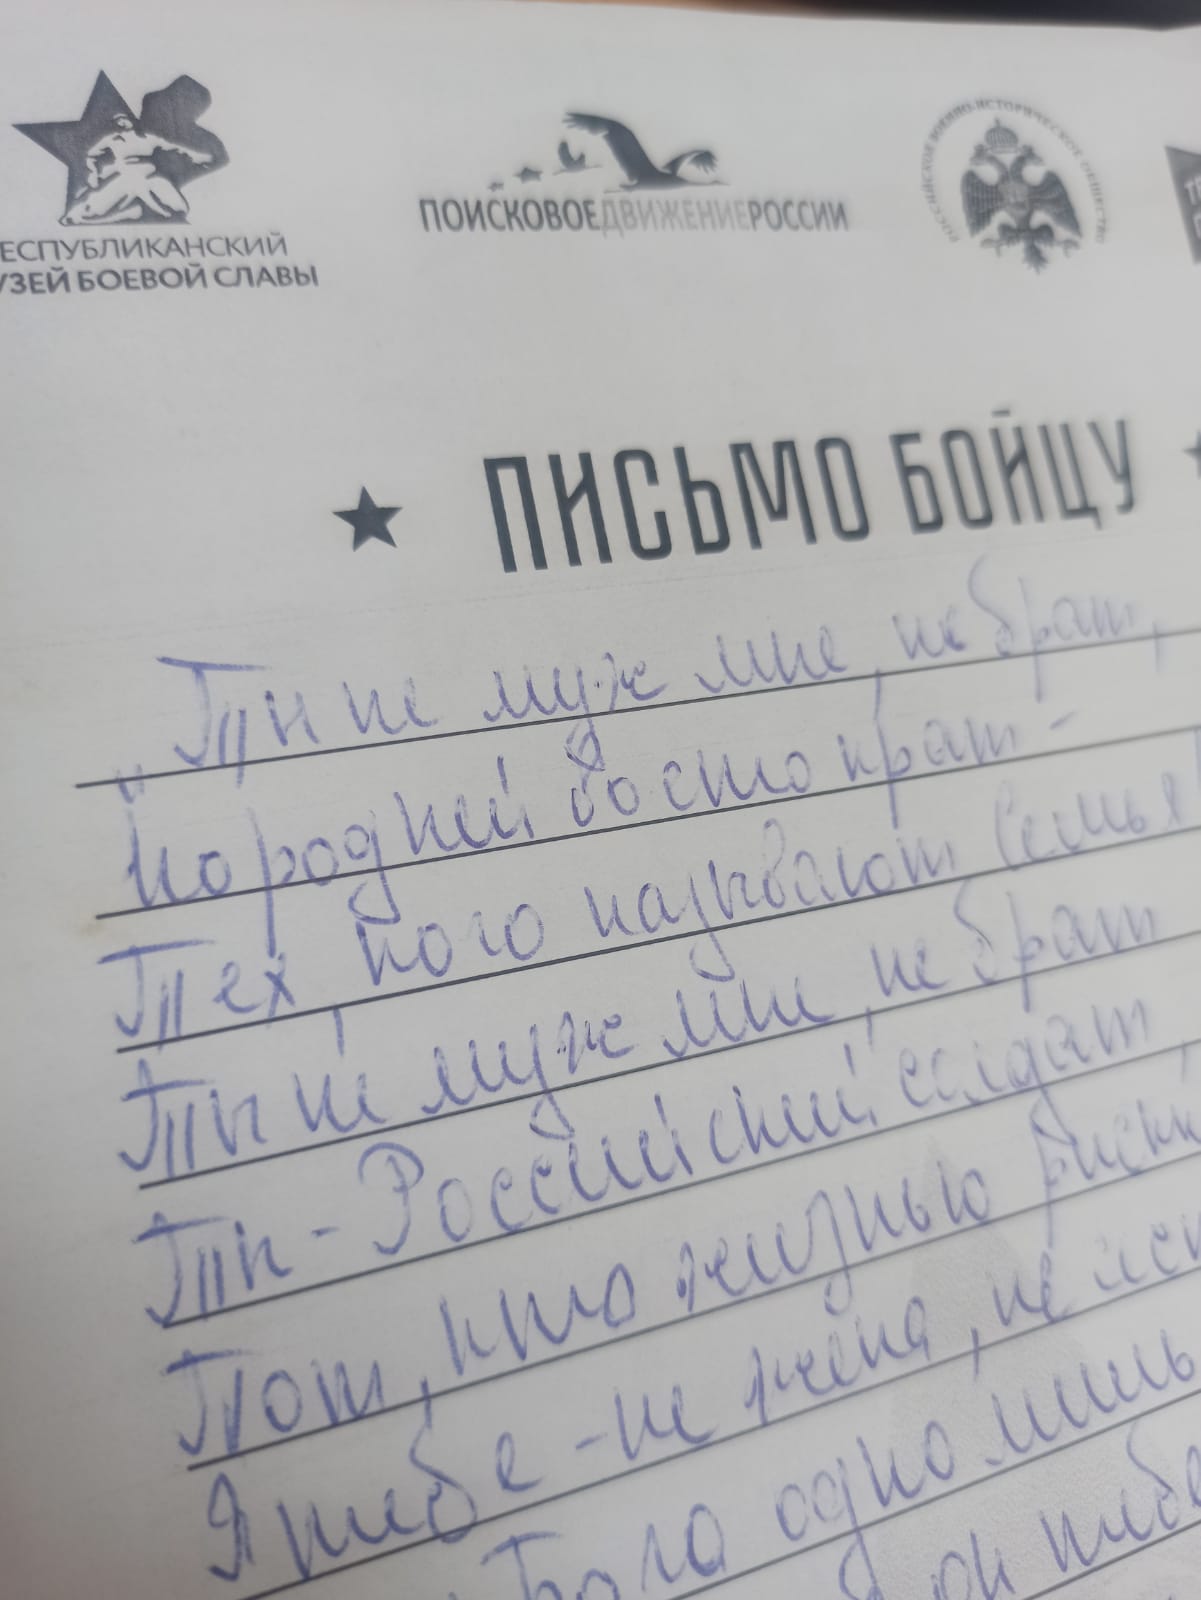 ЕСПУБЛИКАНСКИЙ
УЗЕЙ БОЕВОЙ СЛАВЫ
ПОИСКОВОЕДВИЖЕНИЕРОССИИ
РОССИЙСКОЕ ВОЕННО-ИСТОРИЧЕСКОЕ ОБЩЕСТВО
ПИСЬМО БОЙЦУ
Ты не муж мне, не брат,
Но родней во сто крат -
Тех, кого называют Семья!
Ты не муж мне, не брат
Ты - Российский солдат,
Тот, кто жизнью
Я тебе - не жена, не
Бога одно лишь
он тебе